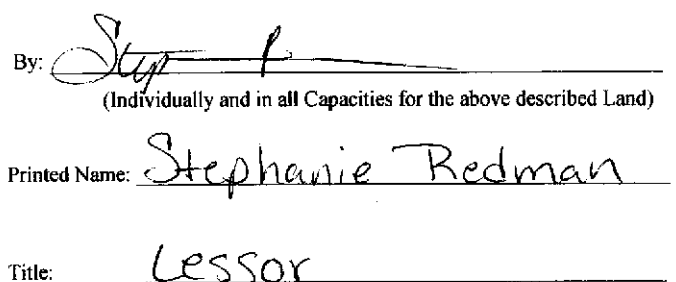 By:
(Individually and in all Capacities for the above described Land)
Printed Name: Stephanie Redman
Title: Lessor